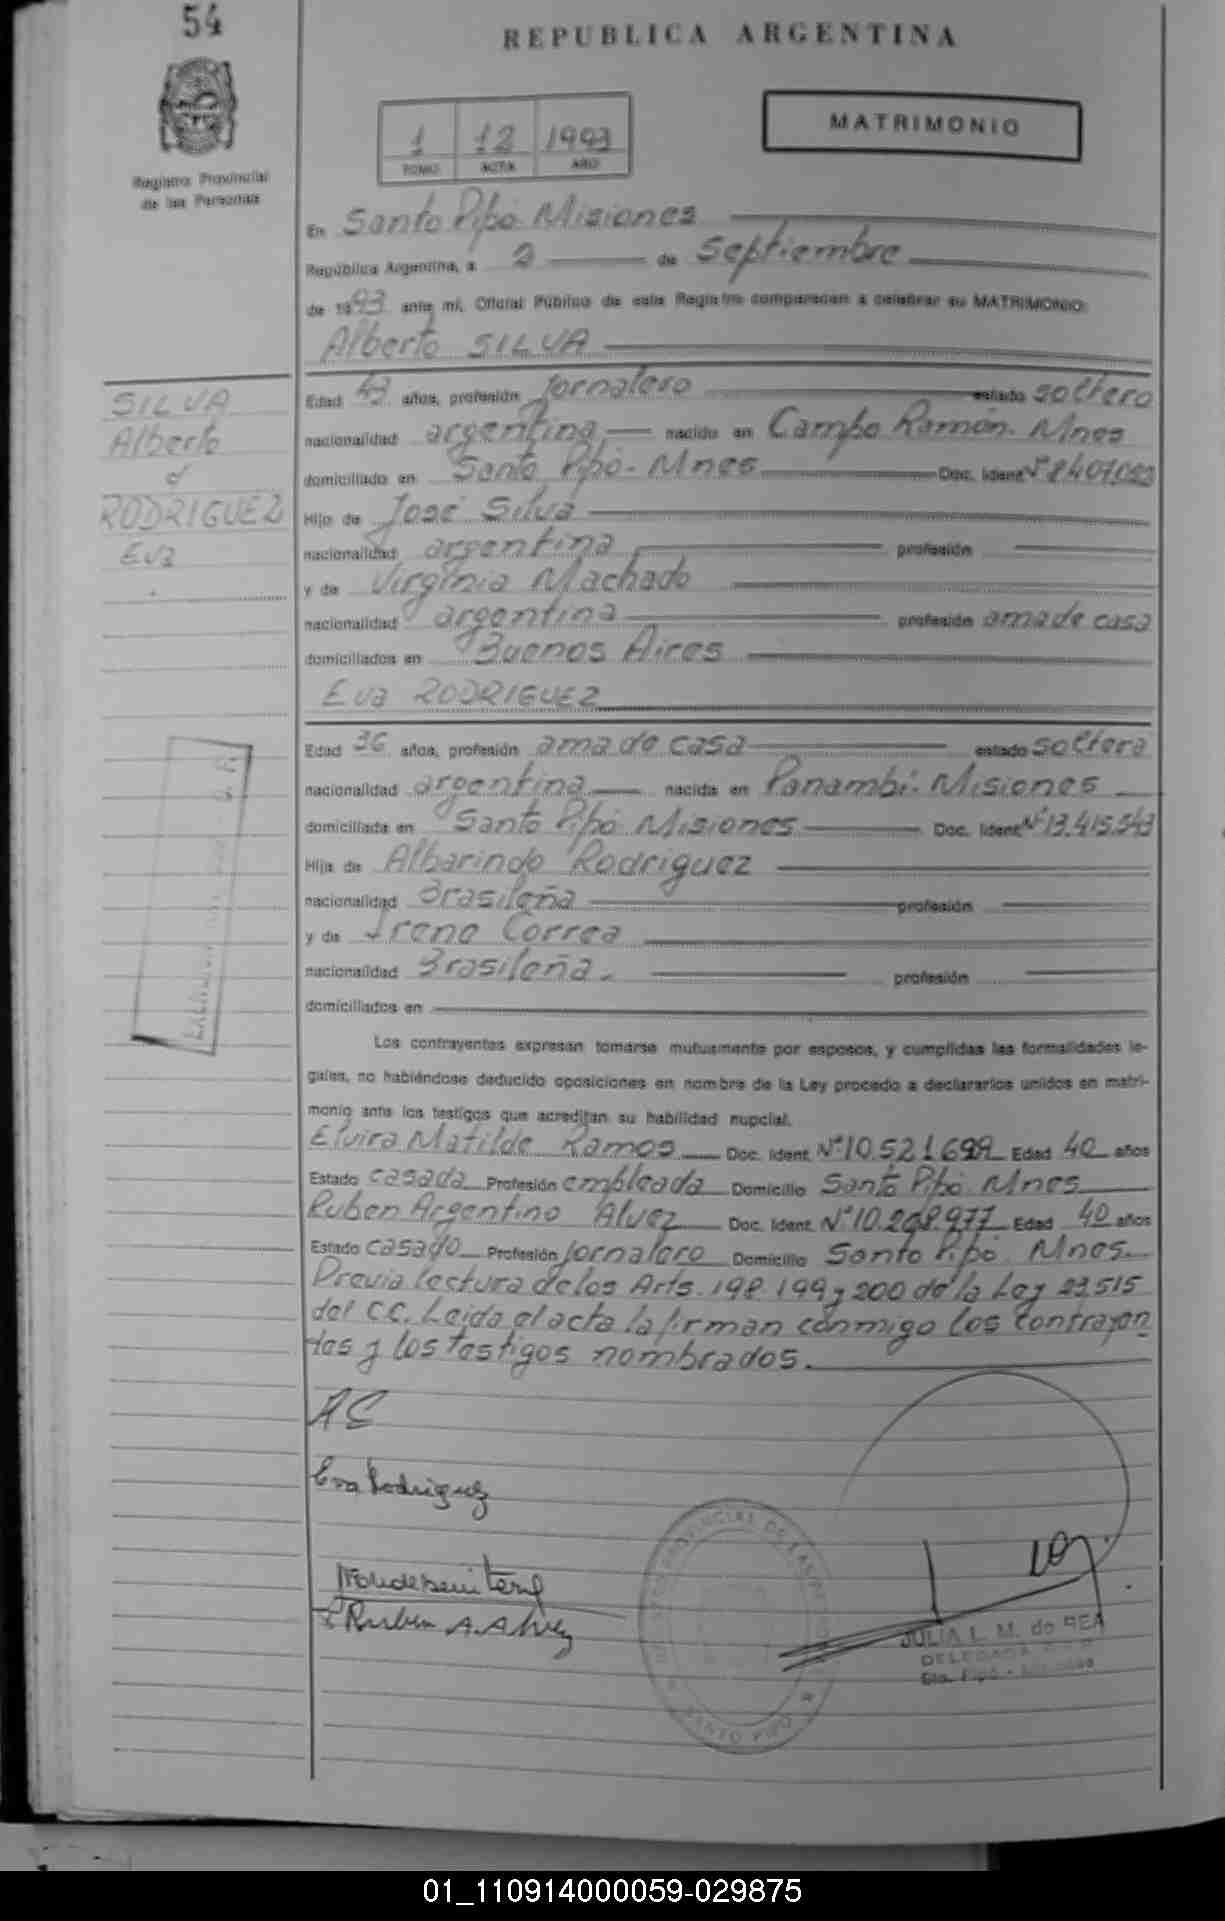 54
REPUBLICA ARGENTINA
Registro Provincial
de las Personas
1 12 1993
TOMO ACTA AÑO
MATRIMONIO
En Santo Pipó Misiones
República Argentina, a 2 de Septiembre
de 1993 ante mí, Oficial Público de este Registro comparecen a celebrar su MATRIMONIO:
Alberto SILVA
SILVA
Alberto
RODRIGUEZ
Eva
Edad 43 años, profesión Jornalero estado soltero
nacionalidad argentina nacido en Campo Ramón. Mnes
domiciliado en Santo Pipó. Mnes Doc. Ident. Nº
Hijo de José Silva
nacionalidad argentina profesión
y de Virginia Machado
nacionalidad argentina profesión ama de casa
domiciliados en Buenos Aires
Eva RODRIGUEZ
Edad 36 años, profesión ama de casa estado soltera
nacionalidad argentina nacida en Panambí. Misiones
domiciliada en Santo Pipó Misiones Doc. Ident. Nº 13.415.543
Hija de Albarindo Rodriguez
nacionalidad Brasileña profesión
y de Irene Correa
nacionalidad Brasileña. profesión
domiciliados en
Los contrayentes expresan tomarse mutuamente por esposos, y cumplidas las formalidades le-
gales, no habiéndose deducido oposiciones en nombre de la Ley procedo a declararlos unidos en matri-
monio ante los testigos que acreditan su habilidad nupcial.
Elvira Matilde Ramos Doc. Ident. Nº 10.521.699 Edad 40 años
Estado casada Profesión empleada Domicilio Santo Pipó Mnes
Ruben Argentino Alvez Doc. Ident. Nº 10.268.977 Edad 40 años
Estado casado Profesión Jornalero Domicilio Santo Pipó. Mnes.
Previa lectura de los Arts. 198. 199 y 200 de la Ley 23.515
del CC. Leida el acta la firman conmigo los contrayen
tes y los testigos nombrados.
AS
Eva Rodriguez
Ruben A. Alvez
SANTO PIPO
JULIA L. M. de REA
DELEGADA
Sto. Pipó - Misiones
01_110914000059-029875